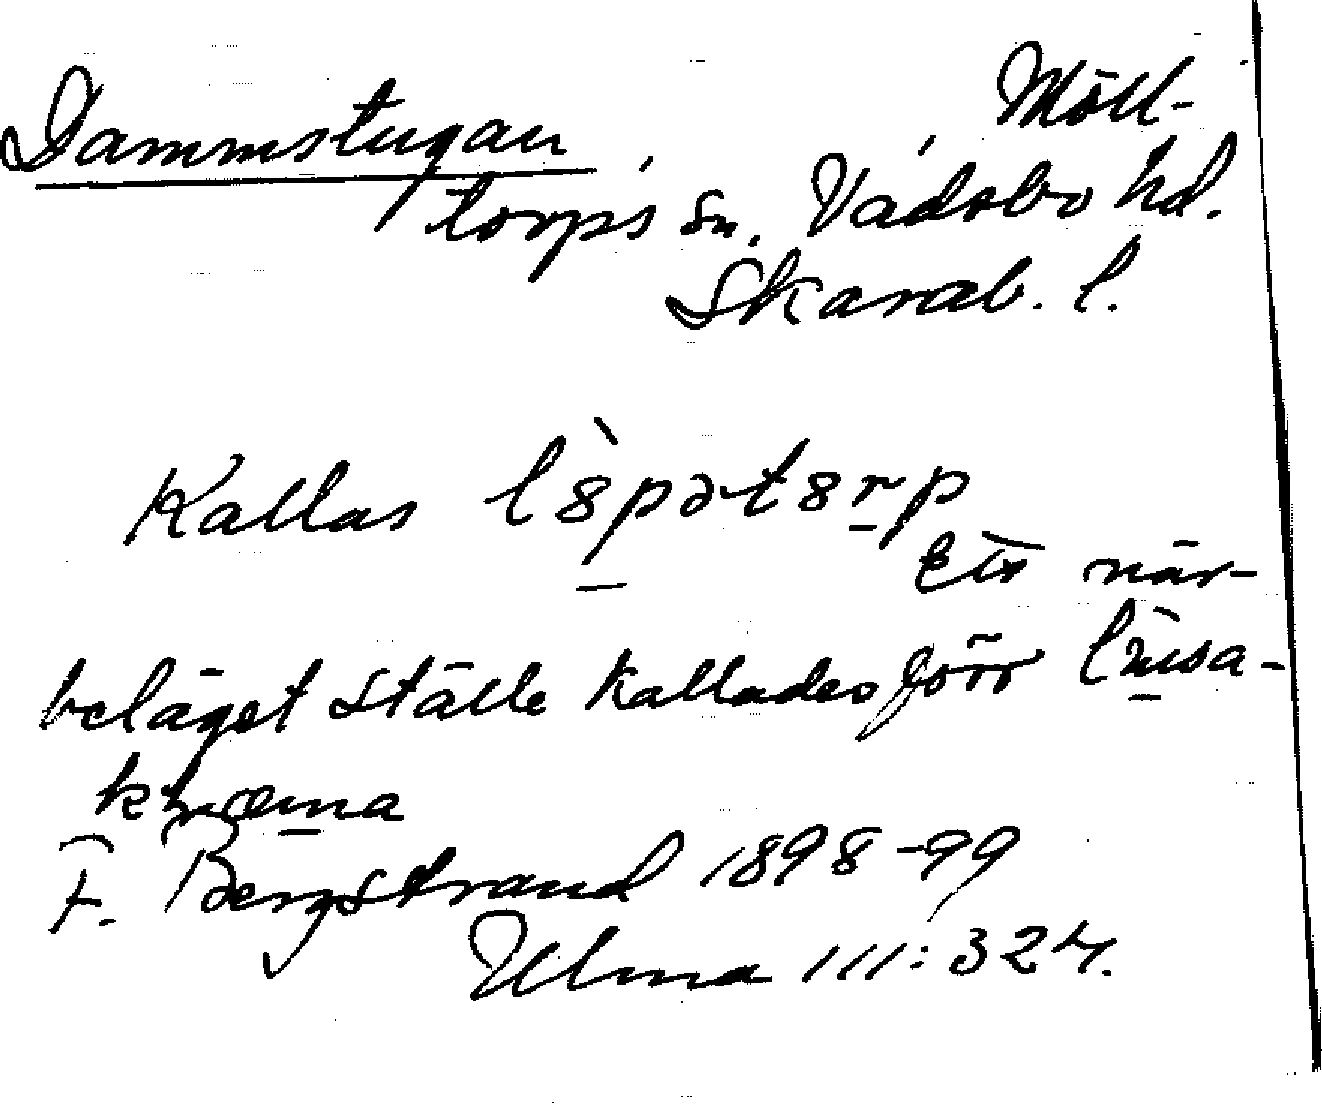 Dammstugan, Möll-
torps sn. Vadsbo hd.
Skarab. l.
Kallas l8̀pət8rp
Ett när-
beläget ställe kallades förr lùsa-
F. Bergstrand 1898-99
Ulma 111:324.